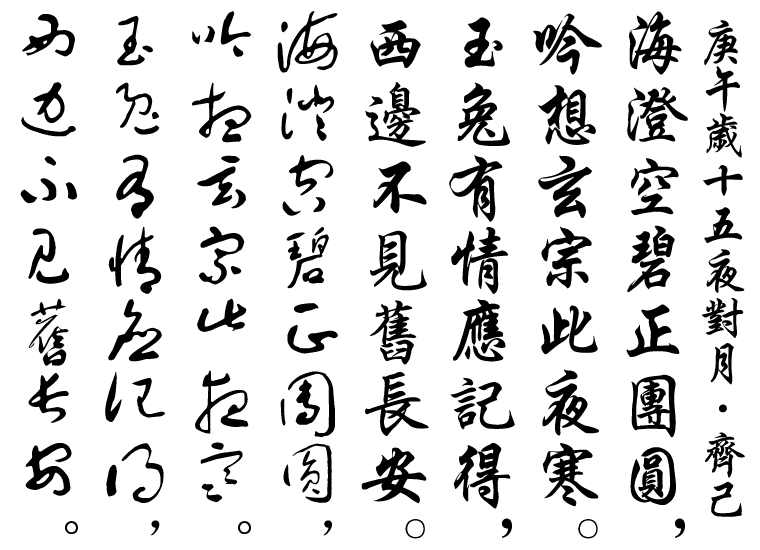 庚午歲十五夜對月・齊己
海澄空碧正團圓，
吟想玄宗此夜寒。
玉兔有情應記得，
西邊不見舊長安。
海澄空碧正團圓，
吟想玄宗此夜寒。
玉兔有情應記得，
西邊不見舊長安。